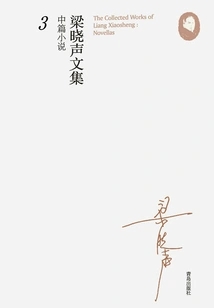 The Collected Works of
Liang Xiaosheng :
Novellas
梁晓声文集
中篇小说
3
梁晓声
青岛出版社